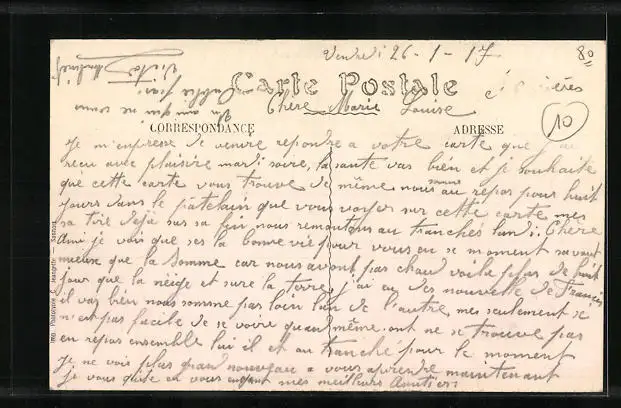 Vendredi 26-1-17
80
Carte Postale
10
Chère Marie Louise
CORRESPONDANCE
ADRESSE
Je m'enpresse de venire repondre a votre carte que j'ai
reçu avec plaisire mardi soire, la sante vas bien et je souhaite
que cette carte vous trouve de même nous sommes au repos pour huit
jours dans le patelain que vous voyer sur cette carte mes
sa tire dejà sur sa fin nous remontons au tranchés lundi. Chère
Ami je vois que ses la bonne vie pour vous en se moment sa vaut
mieux que la Somme car nous avont pas chaud voila plus de huit
jour que la neige et sure la terre, j'ai eu des nouvelle de Francis
il vas bien nous somme pas loin l'un de l'autre mes seulement se
n'est pas facile de se voire quand même ont ne se trouve pas
en repos ensemble lui il et au tranché pour le moment
Je ne vois plus grand nouveau a vous aprendre maintenant
je vous quite en vous mes meilleurs Amitiers
Un ami qui ne vous
oublie pas
Victor
Imp. Phototypie